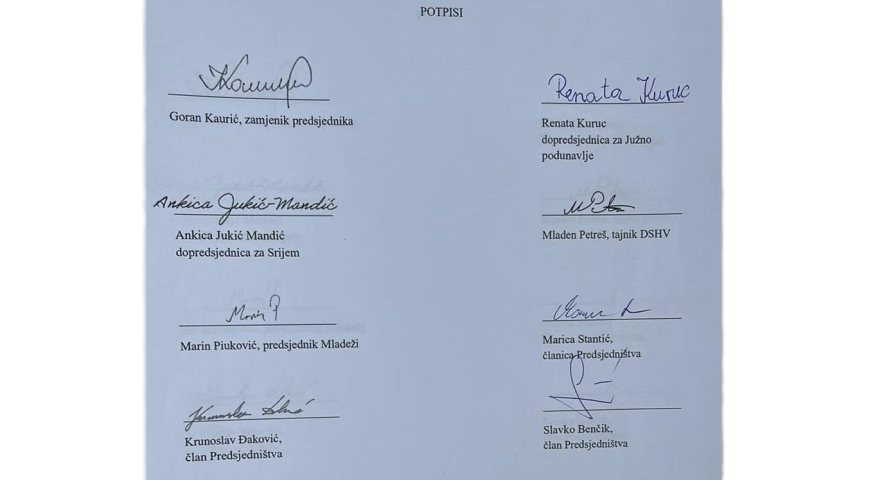 POTPISI
Goran Kaurić, zamjenik predsjednika
Renata Kuruc
Renata Kuruc
dopredsjednica za Južno
podunavlje
Ankica Jukić-Mandić
Ankica Jukić Mandić
dopredsjednica za Srijem
Mladen Petreš, tajnik DSHV
Marin P
Marin Piuković, predsjednik Mladeži
Marica Stantić,
članica Predsjedništva
Krunoslav Đaković,
član Predsjedništva
Slavko Benčik,
član Predsjedništva